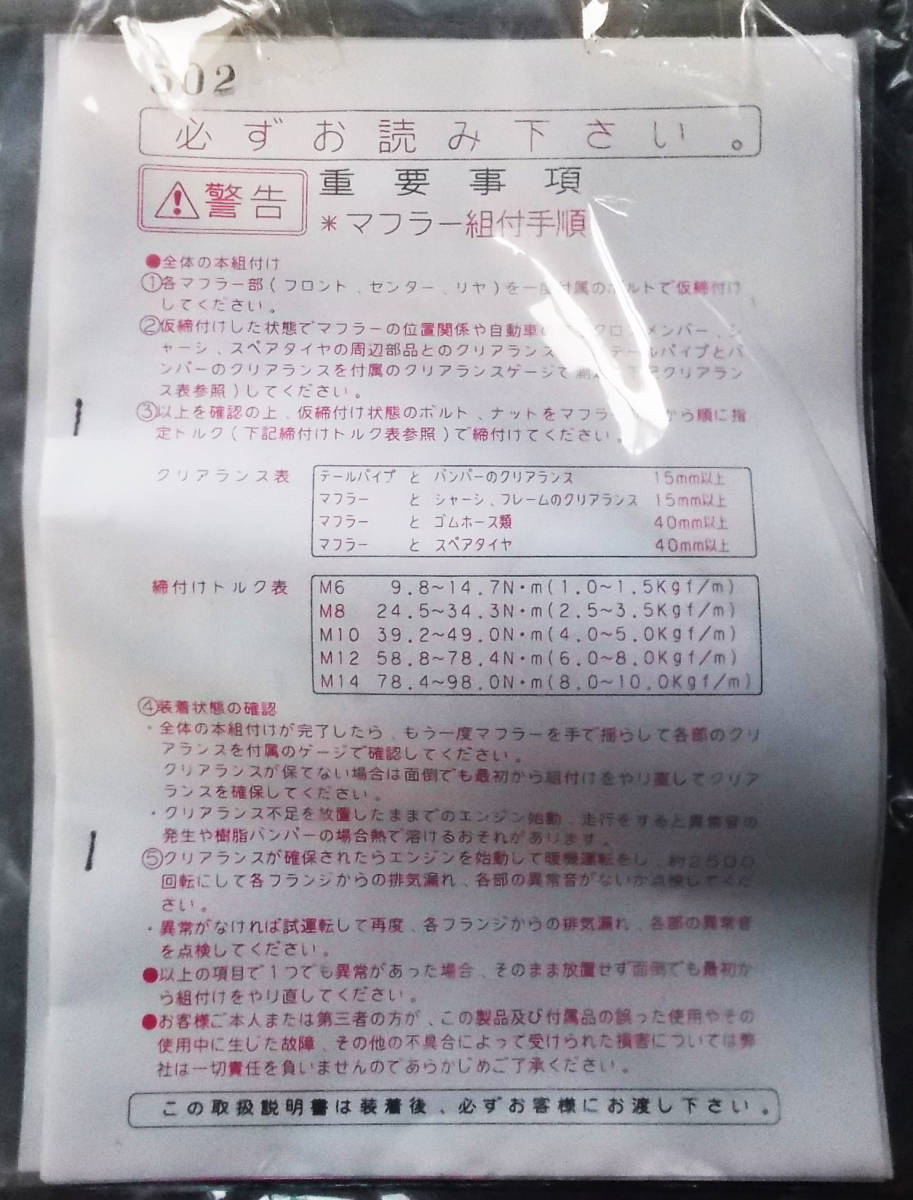 502
必ずお読み下さい。
警告 重要事項
＊マフラー組付手順
●全体の本組付け
①各マフラー部(フロント、センター、リヤ)を一度付属のボルトで仮締付け
してください。
②仮締付けした状態でマフラーの位置関係や自動車の クロ メンバー、シ
ャーシ、スペアタイヤの周辺部品とのクリアランス テールパイプとバ
ンパーのクリアランスを付属のクリアランスゲージで クリアラン
ス表参照)してください。
③以上を確認の上、仮締付け状態のボルト、ナットをマフラー から順に指
定トルク(下記締付けトルク表参照)で締付けてください。
クリアランス表
テールパイプ と バンパーのクリアランス 15mm以上
マフラー と シャーシ、フレームのクリアランス 15mm以上
マフラー と ゴムホース類 40mm以上
マフラー と スペアタイヤ 40mm以上
締付けトルク表
M6 9.8~14.7N・m(1.0~1.5Kgf/m)
M8 24.5~34.3N・m(2.5~3.5Kgf/m)
M10 39.2~49.0N・m(4.0~5.0Kgf/m)
M12 58.8~78.4N・m(6.0~8.0Kgf/m)
M14 78.4~98.0N・m(8.0~10.0Kgf/m)
④装着状態の確認
・全体の本組付けが完了したら、もう一度マフラーを手で揺らして各部のクリ
アランスを付属のゲージで確認してください。
クリアランスが保てない場合は面倒でも最初から組付けをやり直してクリア
ランスを確保してください。
・クリアランス不足を放置したままでのエンジン始動、走行をすると異常音の
発生や樹脂バンパーの場合熱で溶けるおそれがあります。
⑤クリアランスが確保されたらエンジンを始動して暖機運転をし、約2500
回転にして各フランジからの排気漏れ、各部の異常音がないか点検してくだ
さい。
・異常がなければ試運転して再度、各フランジからの排気漏れ、各部の異常音
を点検してください。
●以上の項目で1つでも異常があった場合、そのまま放置せず面倒でも最初か
ら組付けをやり直してください。
●お客様ご本人または第三者の方が、この製品及び付属品の誤った使用やその
使用中に生じた故障、その他の不具合によって受けられた損害については弊
社は一切責任を負いませんのであらかじめご了承ください。
この取扱説明書は装着後、必ずお客様にお渡し下さい。